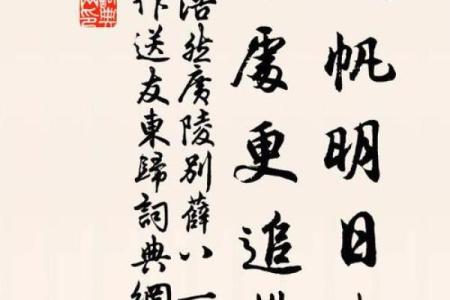 帆明日
處更追
浩然廣陵別薛八一
作送友東歸詞典網